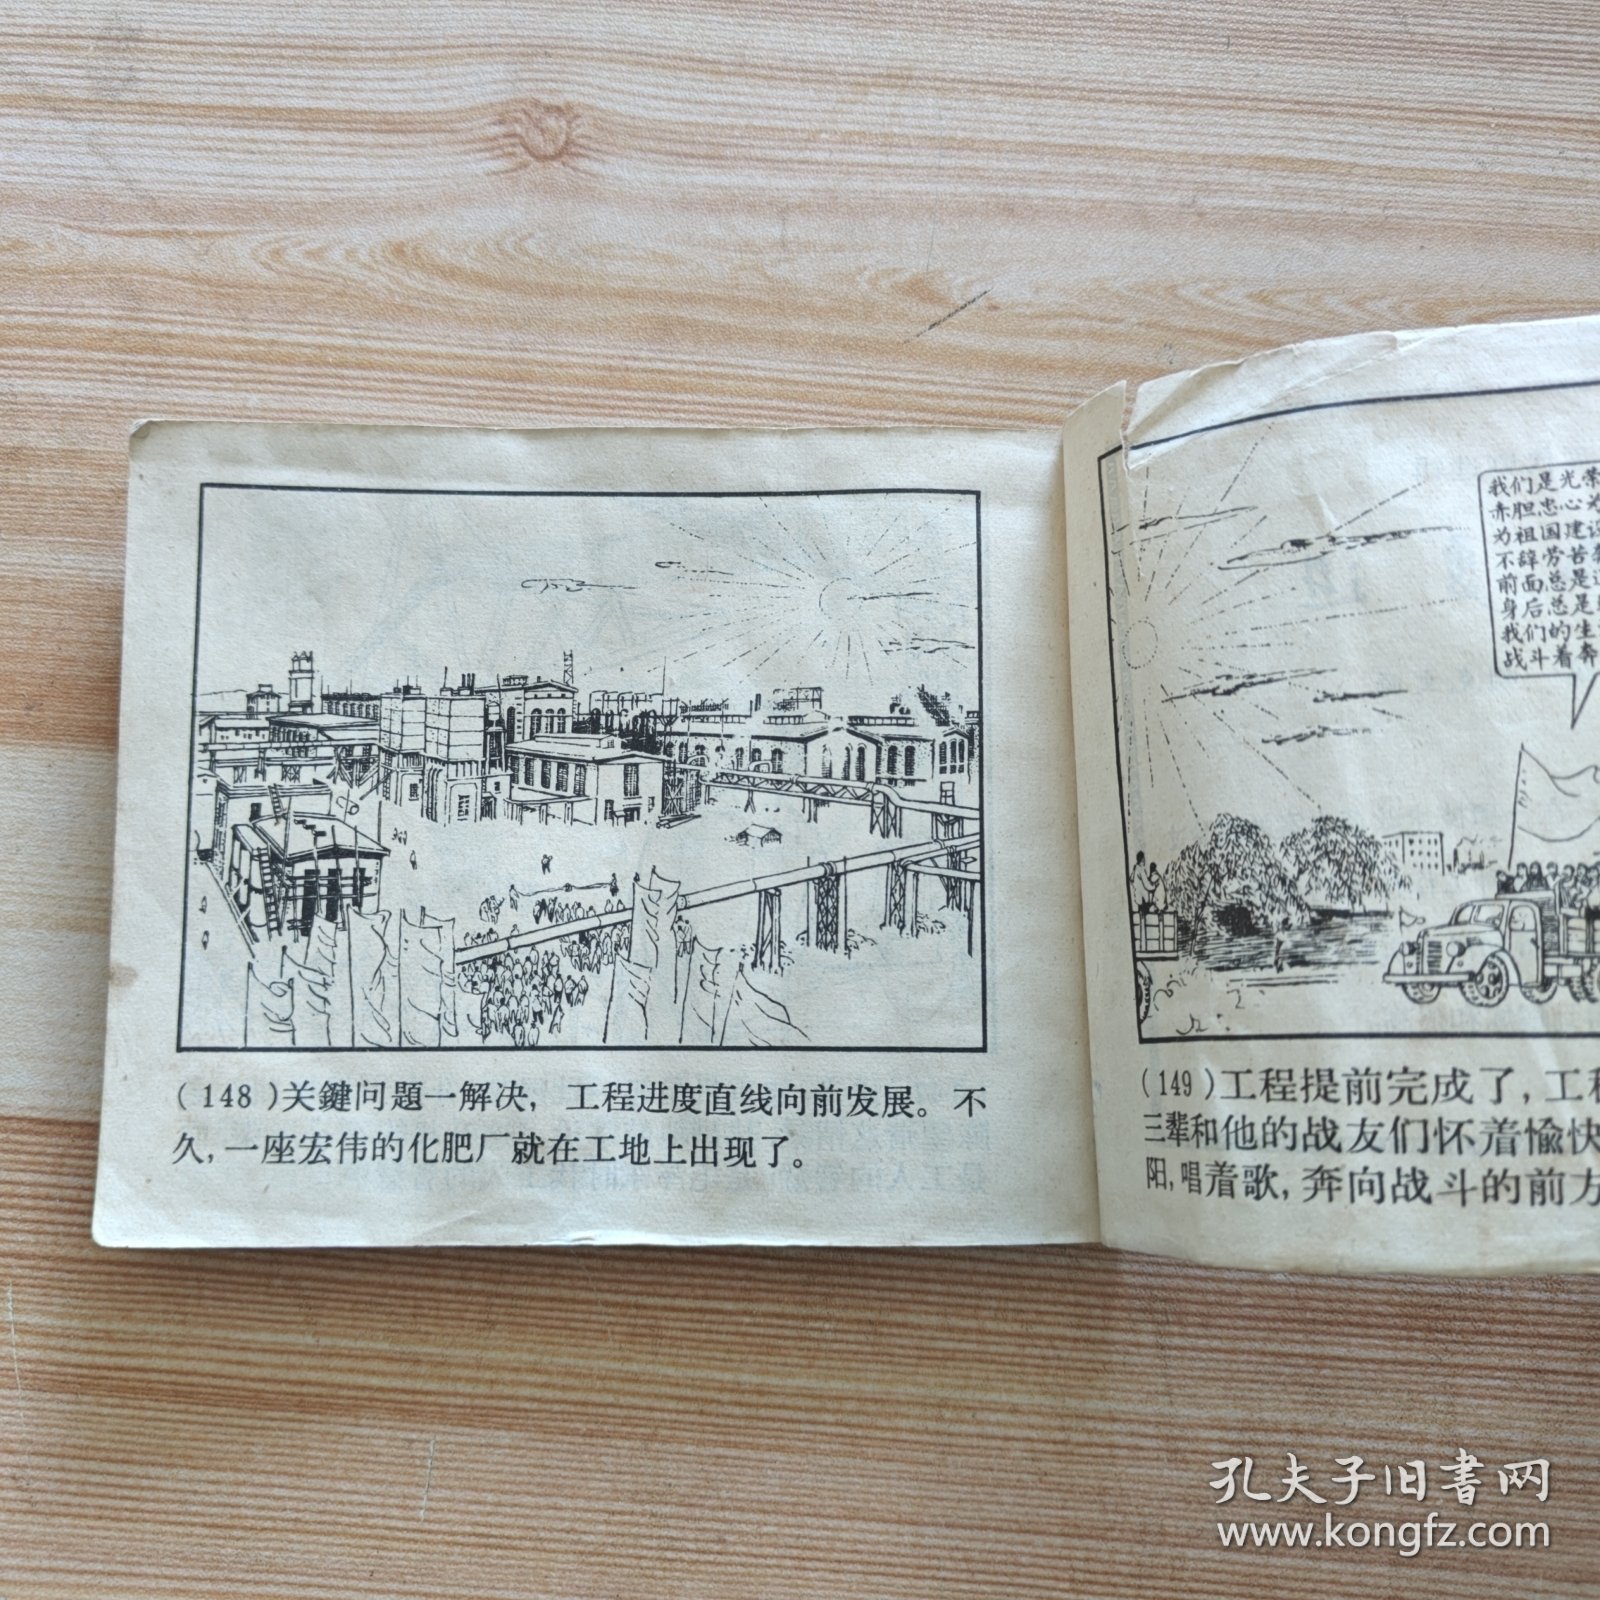 (148)关鍵问题一解决，工程进度直线向前发展。不
久，一座宏伟的化肥厂就在工地上出现了。
我们是光荣
赤胆忠心为
为祖国建设
不辞劳苦
前面总是
身后总是
我们的生
战斗着奔
(149)工程提前完成了，工程
三辈和他的战友们怀着愉快
阳，唱着歌，奔向战斗的前方
孔夫子旧书网
www.kongfz.com